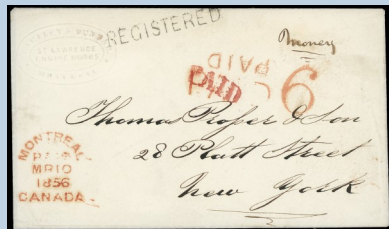 REGISTERED
Money
PAID
PAID
6
Thomas Prosser & Son
28 Platt Street
New York
MONTREAL
PAID
MR 10
1856
CANADA